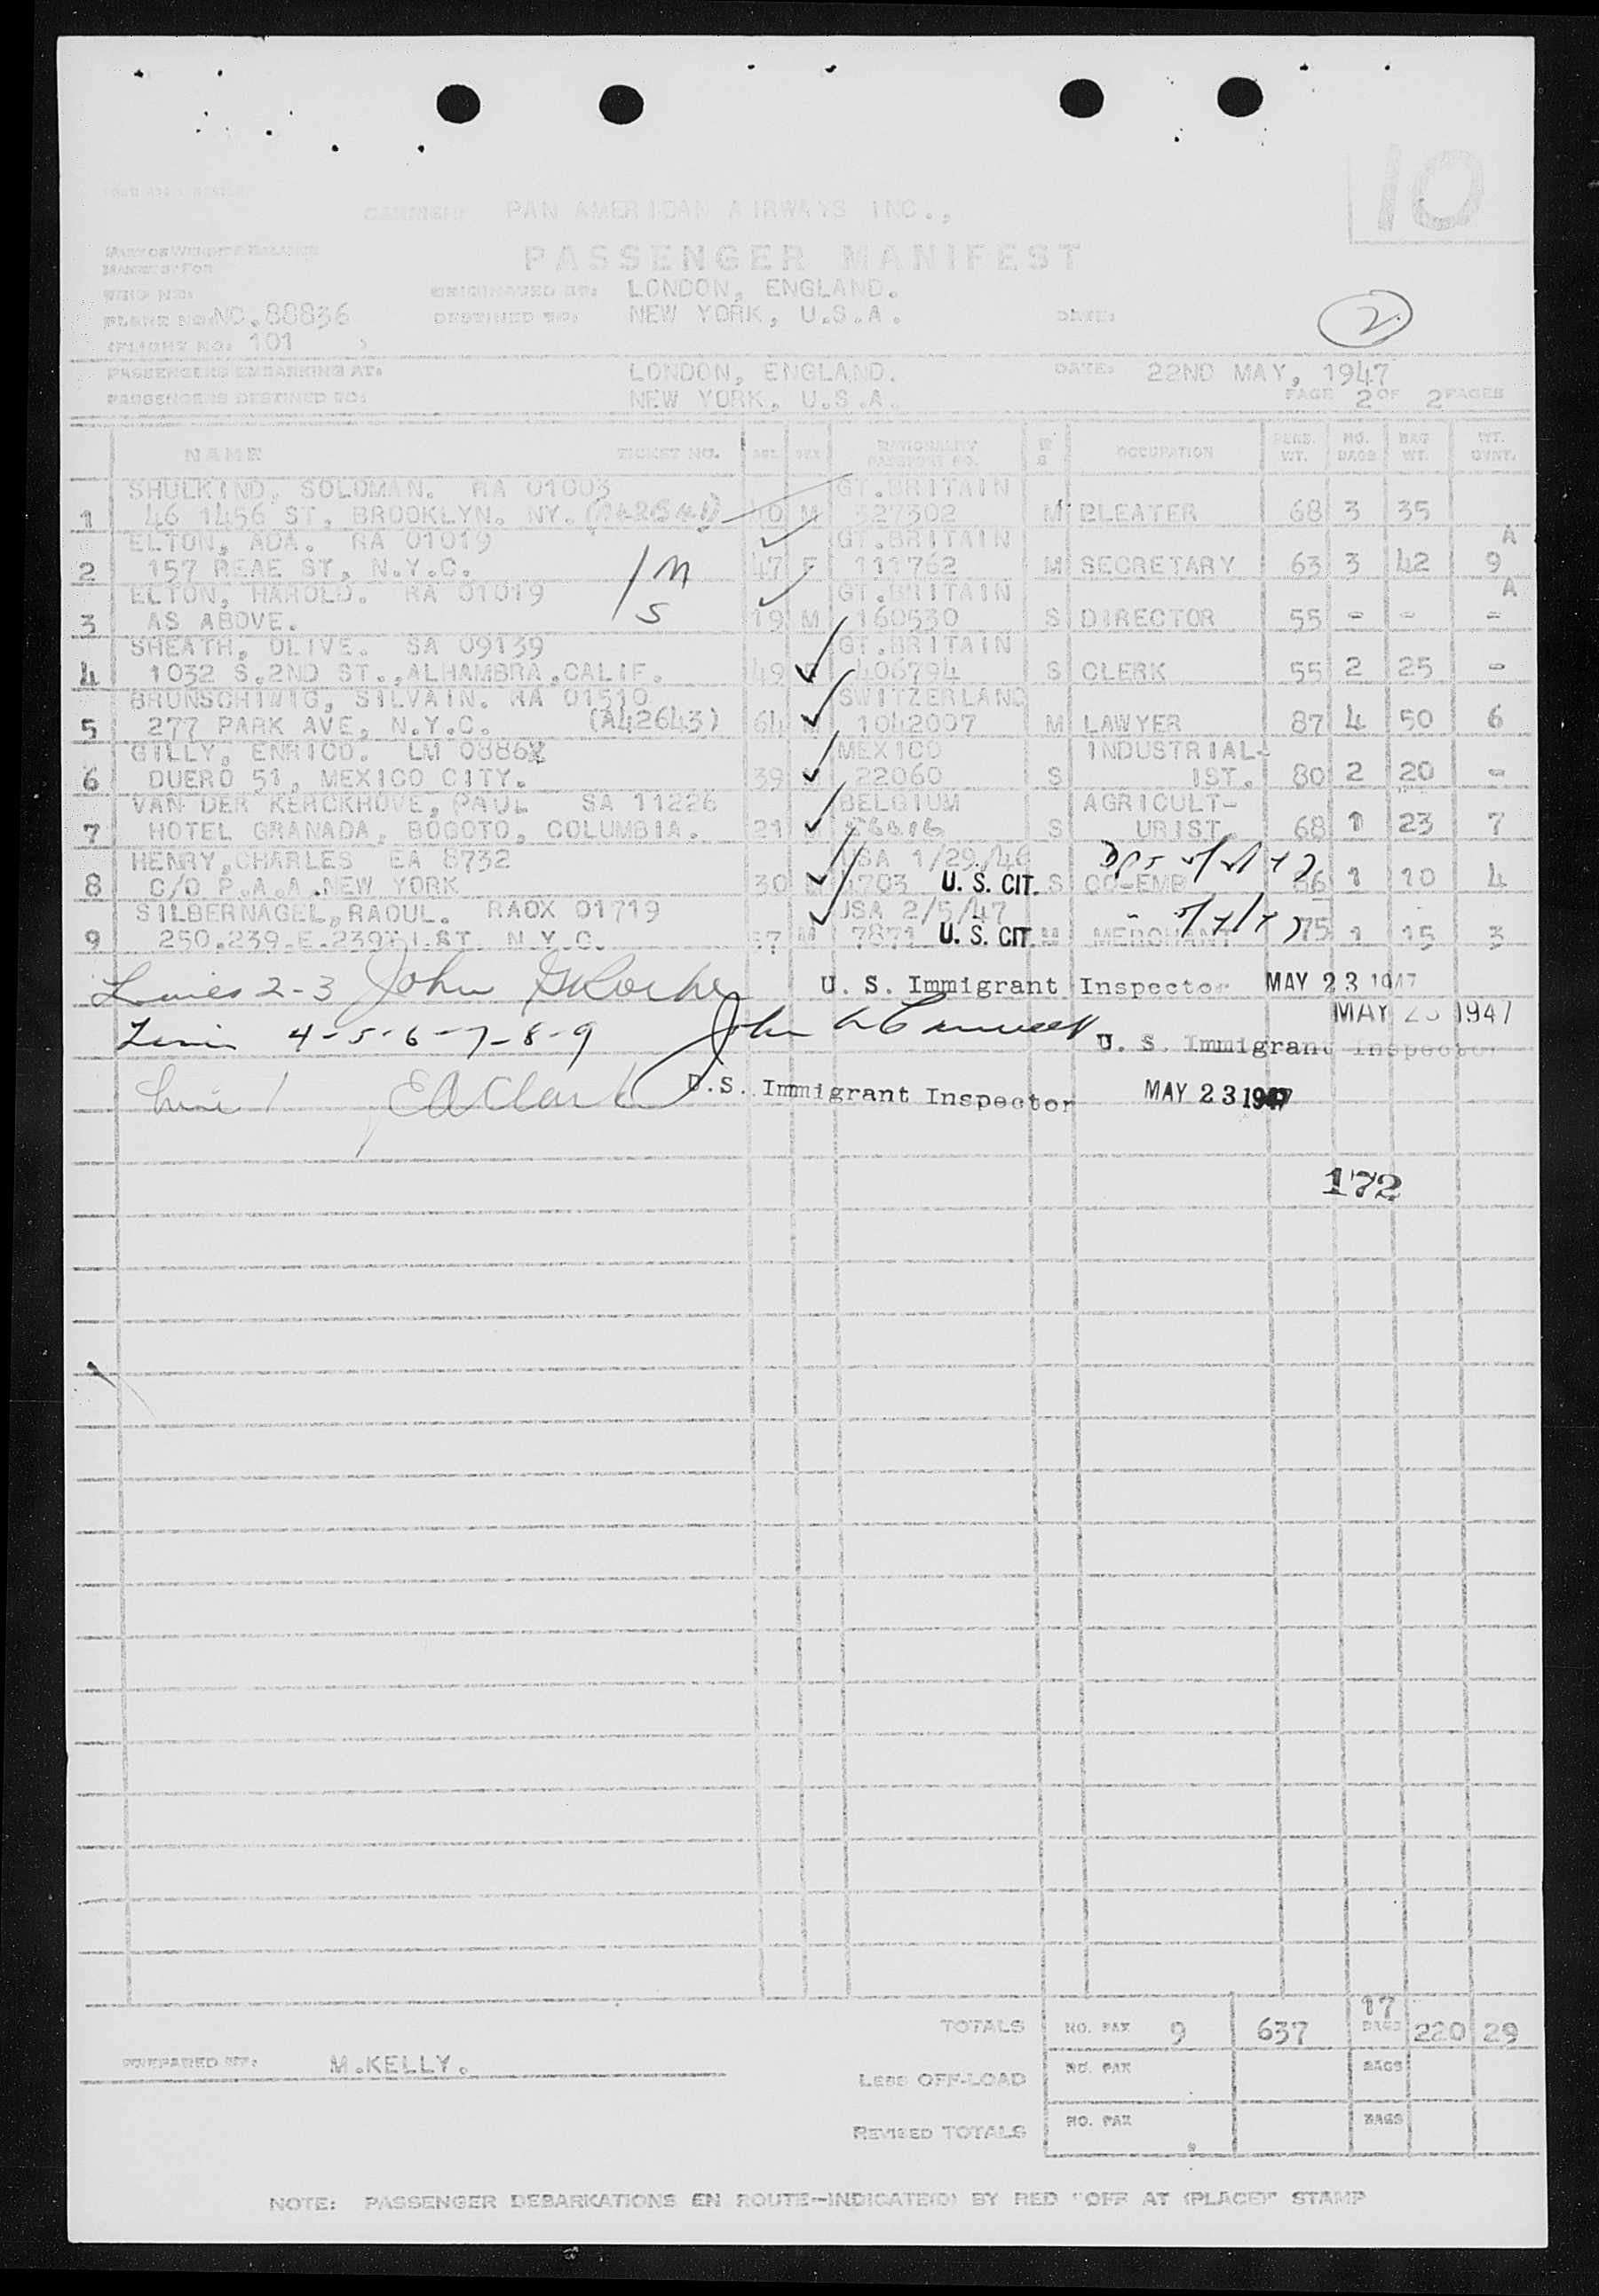 10
CARRIER: PAN AMERICAN AIRWAYS INC.,
PASSENGER MANIFEST
MANIFEST FOR
ORIGINATED AT: LONDON, ENGLAND.
PLANE NO. NO.88836 DESTINED TO: NEW YORK, U.S.A. DATE: 2
(FLIGHT NO: 101 )
PASSENGERS EMBARKING AT: LONDON, ENGLAND. DATE: 22ND MAY, 1947
PASSENGERS DESTINED TO: NEW YORK, U.S.A. PAGE 2 OF 2 PAGES
NAME TICKET NO. AGE SEX NATIONALITY PASSPORT NO. OCCUPATION PERS. WT. NO. BAGS BAG WT. WT. OVNT.
SHULKIND, SOLOMAN. RA 01003 GT.BRITAIN
1 46 1456 ST, BROOKLYN. NY. M 327302 M BLEATER 68 3 35
ELTON, ADA. RA 01019 GT.BRITAIN A
2 157 REAE ST, N.Y.C. 1 M 47 F 111762 M SECRETARY 63 3 42 9
ELTON, HAROLD. RA 01019 GT.BRITAIN A
3 AS ABOVE. S 19 M 160530 S DIRECTOR 55 - - -
SHEATH, OLIVE. SA 09139 GT.BRITAIN
4 1032 S.2ND ST.,ALHAMBRA,CALIF. 49 F 406794 S CLERK 55 2 25 -
BRUNSCHIWIG, SILVAIN. RA 01510 SWITZERLAND
5 277 PARK AVE, N.Y.C. (A42643) 64 M 1042007 M LAWYER 87 4 50 6
GILLY, ENRICO. LM MEXICO INDUSTRIAL-
6 DUERO 51, MEXICO CITY. 39 M 22060 S IST. 80 2 20 -
VAN DER KERCKHOVE, PAUL SA 11226 BELGIUM AGRICULT-
7 HOTEL GRANADA, BOGOTO, COLUMBIA. 21 M S URIST. 68 1 23 7
HENRY,CHARLES EA 8732 USA 1/29/46
8 C/O P.A.A.NEW YORK 30 M 1703 U. S. CIT. S CO-EMP 66 1 10 4
SILBERNAGEL,RAOUL. RAOX 01719 USA 2/5/47
9 N.Y.C. M 7871 U. S. CIT. M MERCHANT 75 1 15 3
Lines 2-3 John U. S. Immigrant Inspector MAY 23 1947
MAY 23 1947
Lines 4-5-6-7-8-9 John U. S. Immigrant Inspector
Line 1 EA Clark U.S. Immigrant Inspector MAY 23 1947
172
17
TOTALS NO. PAX 9 637 BAGS 220 29
PREPARED BY: M.KELLY.
LESS OFF-LOAD NO. PAX BAGS
REVISED TOTALS NO. PAX BAGS
NOTE: PASSENGER DEBARKATIONS EN ROUTE-INDICATE(D) BY RED "OFF AT (PLACE)" STAMP